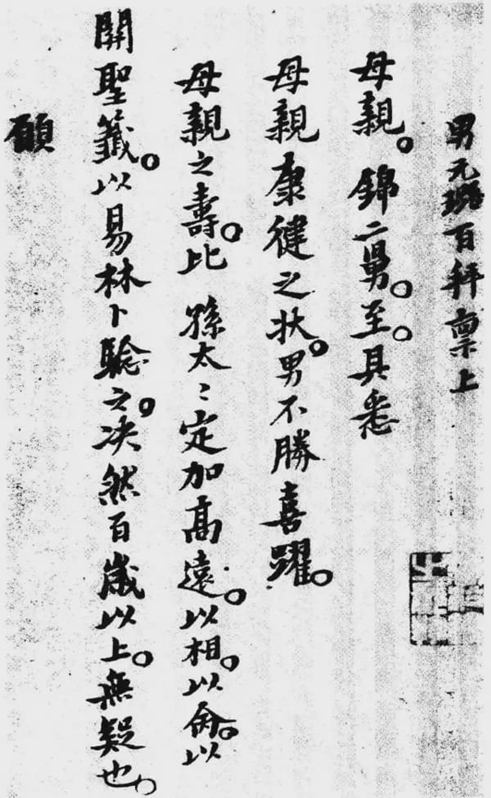 男元璐百拜稟上
母親。錦二舅。至。具悉
母親康健之狀。男不勝喜躍。
母親之壽。比孫太〻定加高遠。以相。以命。以
關聖籤。以易林卜驗之。決然百歲以上。無疑也。
願